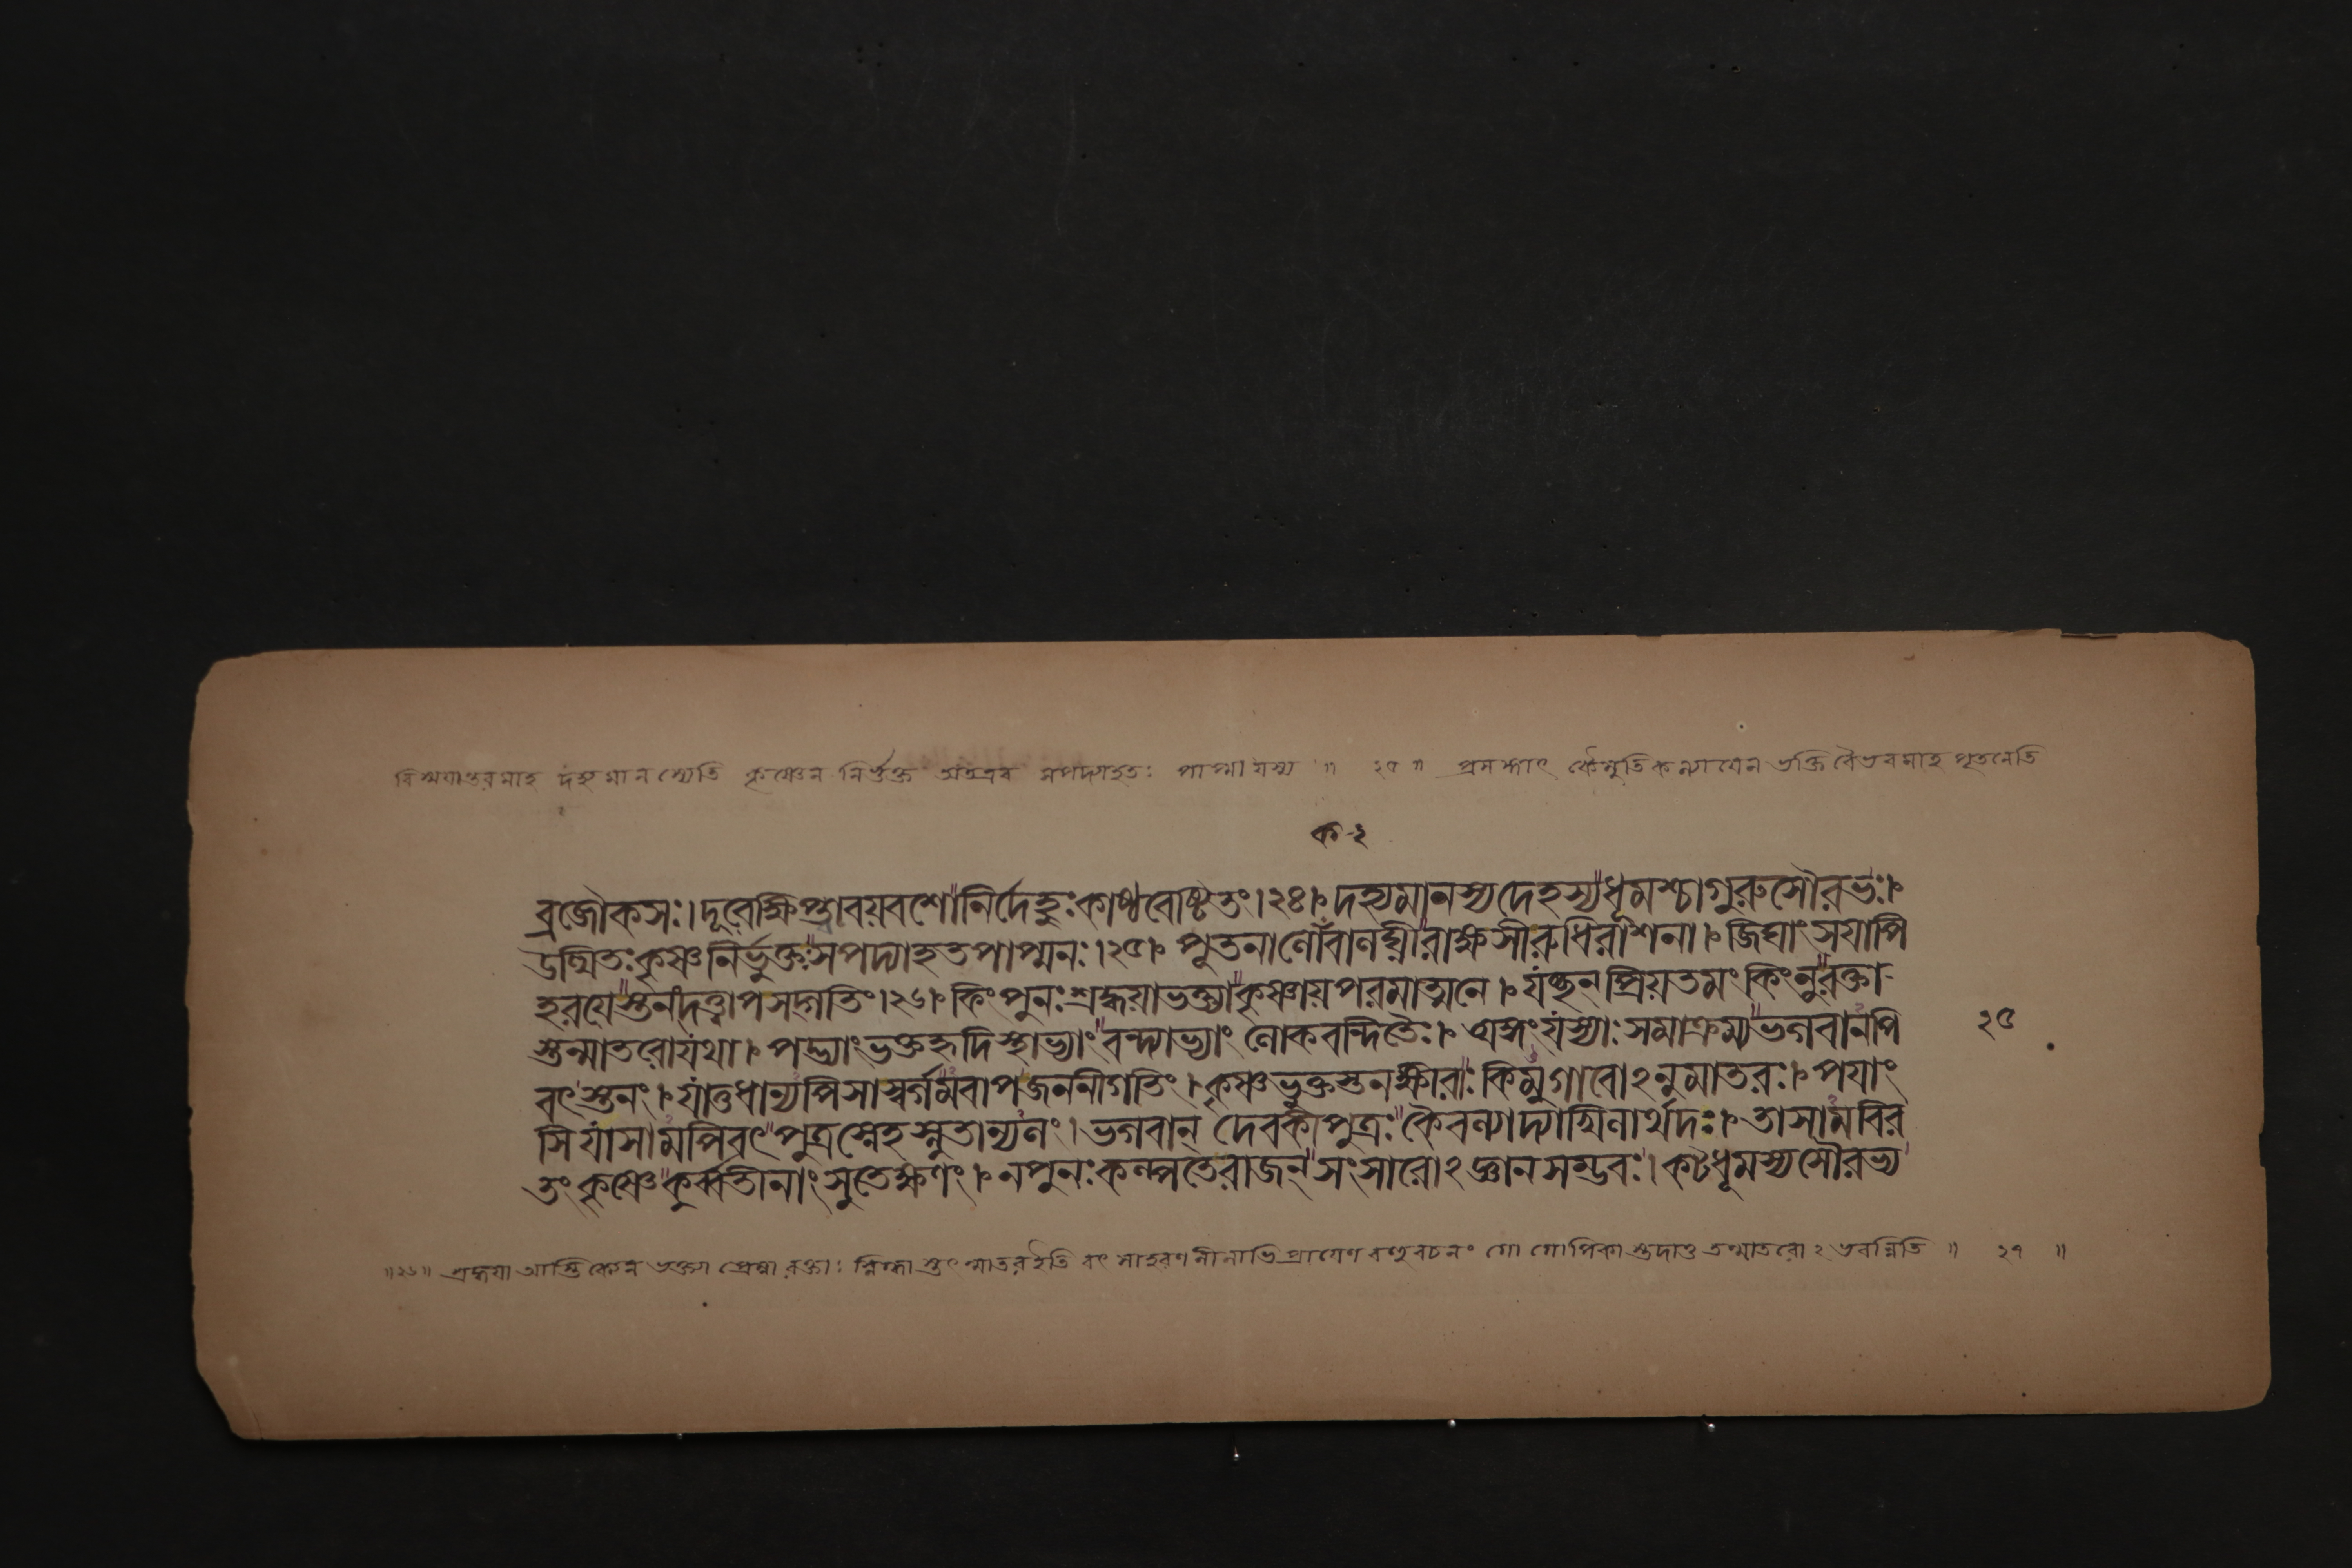 বিস্ময়ান্তরমাহ দহ্যমানস্যেতি কৃষ্ণেন নির্ভুক্ত অতএব সপদ্যাহতঃ পাপ্মা যস্য ॥ ২৫ ॥ প্রসঙ্গাৎ কৈমুতিকন্যায়েন ভক্তি বৈভবমাহ পূতনেতি
ব্রজৌকসঃ।দূরেক্ষিপ্ত্বাবয়বশোনির্দেহুঃকাষ্ঠবেষ্টিতং।২৪। দহ্যমানস্যদেহস্যধূমশ্চাগুরুসৌরভঃ।
উত্থিতঃকৃষ্ণনির্ভুক্তসপদ্যাহতপাপ্মনঃ।২৫। পূতনালোকবালঘ্নীরাক্ষসীরুধিরাশনা। জিঘাংসয়াপি
হরয়েস্তনংদত্ত্বাপসদ্গতিং।২৬। কিংপুনঃশ্রদ্ধয়াভক্ত্যাকৃষ্ণায়পরমাত্মনে। যচ্ছন্প্রিয়তমং কিংনুরক্তা-
স্তন্মাতরোযথা। পদ্ভ্যাংভক্তহৃদিস্থাভ্যাংবন্দ্যাভ্যাং লোকবন্দিতৈঃ। অঙ্গংযস্যাঃসমাক্রম্যভগবানপি
২৫
বৎস্তনং। যাতুধান্যপিসাস্বর্গমবাপজননীগতিং। কৃষ্ণভুক্তস্তনক্ষীরাঃকিমুগাবোঽনুমাতরঃ। পয়াং
সিযাসামপিবৎপুত্রস্নেহস্নুতান্যলং। ভগবান্ দেবকীপুত্রঃকৈবল্যাদ্যাখিলার্থদঃ। তাসামবির
তং কৃষ্ণেকুর্ব্বতীনাংসুতেক্ষণং। নপুনঃকল্পতেরাজন্সংসারোঽজ্ঞানসম্ভবঃ। কটধূমস্যসৌরভ্য
॥২৬॥ শ্রদ্ধয়া আস্তিক্যেন ভক্ত্যা প্রেম্না রক্তাঃ স্নিগ্ধাস্তৎ মাতর ইতি বৎসাহরণলীলাভিপ্রায়েণ বহুবচনং গো গোপিকাস্তদাত্ত তন্মাতরোঽভবন্নিতি ॥ ২৭ ॥